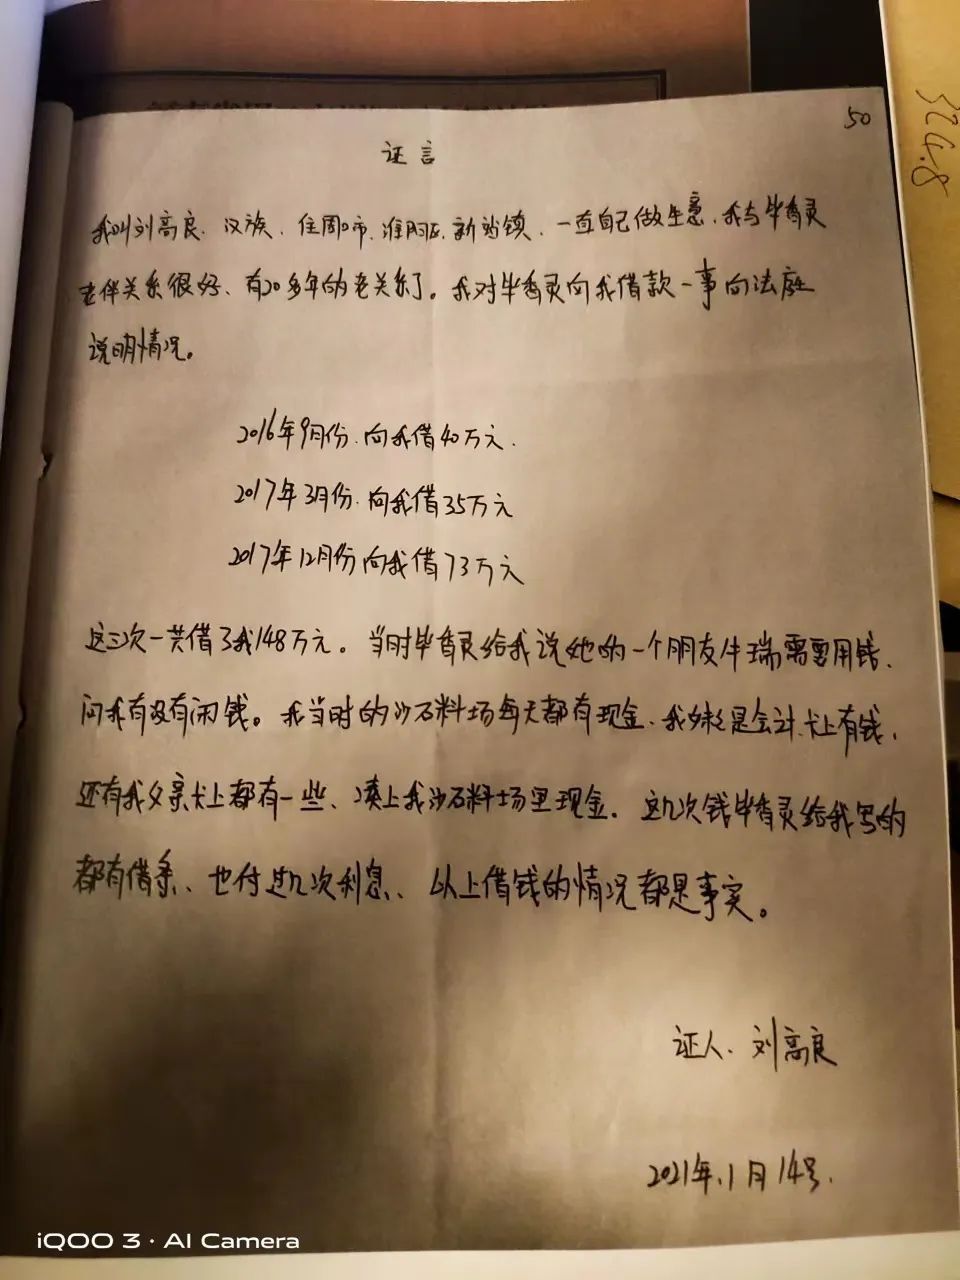 50
324.8
证言
我叫刘高良、汉族、住周口市、淮阳区、新站镇、一直自己做生意、我与毕香灵
老伴关系很好、有20多年的老关系了。我对毕香灵向我借款一事向法庭
说明情况。
2016年9月份、向我借40万元、
2017年3月份、向我借35万元
2017年12月份向我借73万元
这三次一共借了我148万元。当时毕香灵给我说她的一个朋友牛瑞需要用钱、
问我有没有闲钱。我当时的沙石料场每天都有现金、我妹是会计、卡上有钱、
还有我父亲卡上都有一些、凑上我沙石料场里现金、这几次钱毕香灵给我写的
都有借条、也付过几次利息、以上借钱的情况都是事实。
证人、刘高良
2021年、1月14号、
iQOO 3 · AI Camera